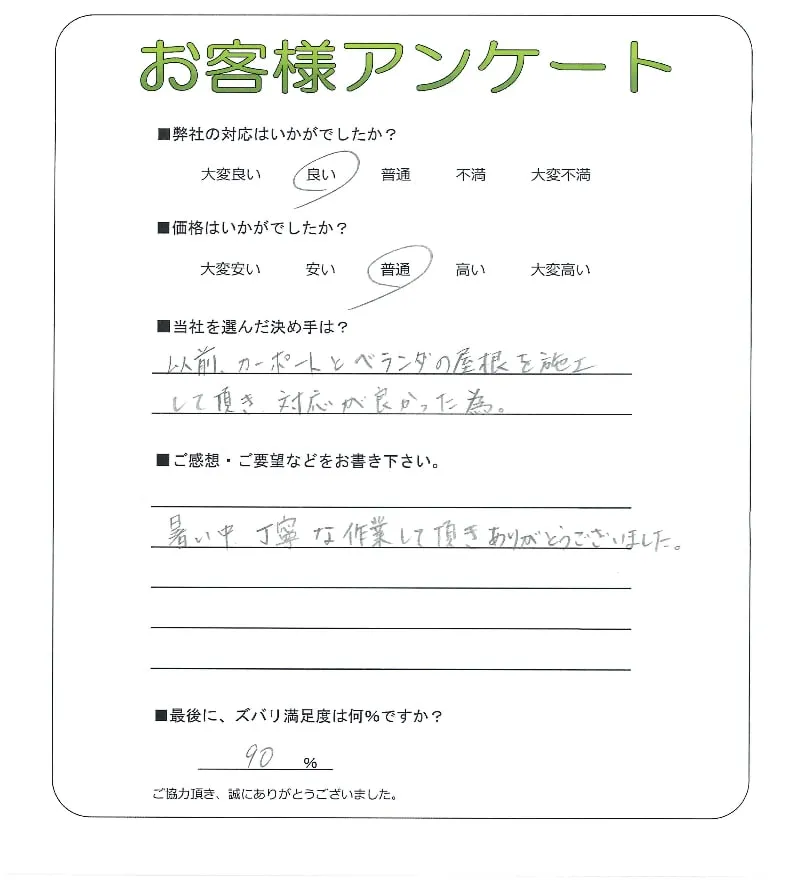 お客様アンケート
■弊社の対応はいかがでしたか？
大変良い 良い 普通 不満 大変不満
■価格はいかがでしたか？
大変安い 安い 普通 高い 大変高い
■当社を選んだ決め手は？
以前、カーポートとベランダの屋根を施工
して頂き、対応が良かった為。
■ご感想・ご要望などをお書き下さい。
暑い中、丁寧な作業して頂きありがとうございました。
■最後に、ズバリ満足度は何%ですか？
90 %
ご協力頂き、誠にありがとうございました。